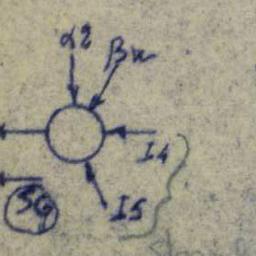 α2 βu
I4
I5
SG